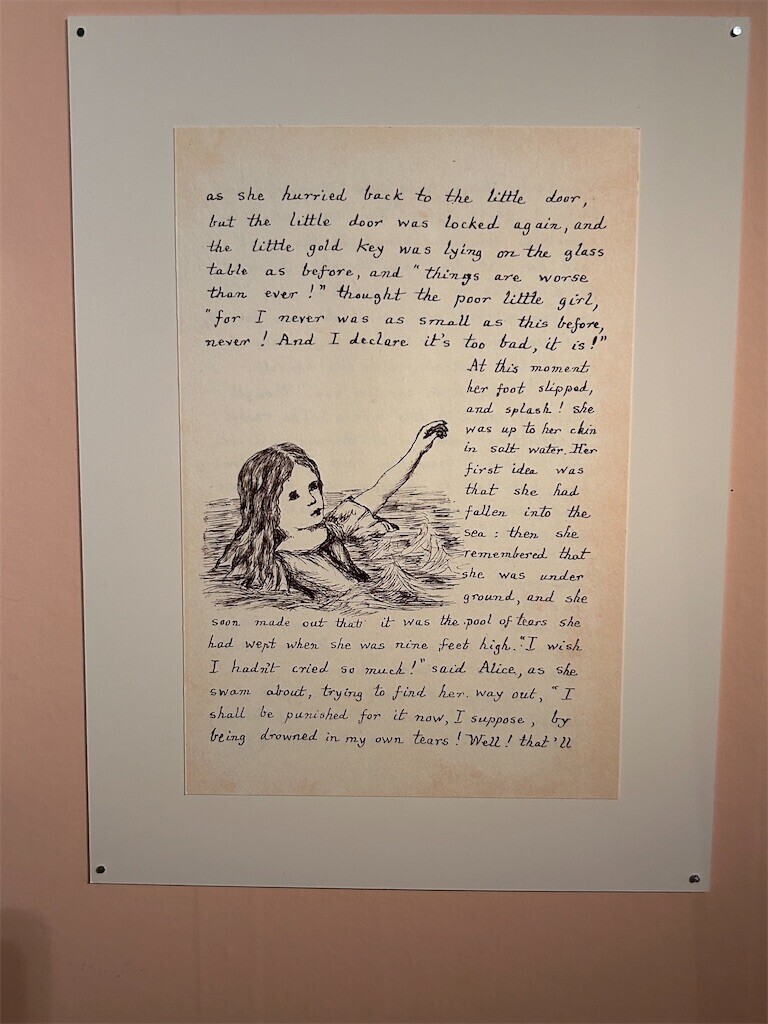 as she hurried back to the little door,
but the little door was locked again, and
the little gold key was lying on the glass
table as before, and "things are worse
than ever!" thought the poor little girl,
"for I never was as small as this before,
never! And I declare it's too bad, it is!"
At this moment
her foot slipped,
and splash! she
was up to her chin
in salt water. Her
first idea was
that she had
fallen into the
sea: then she
remembered that
she was under
ground, and she
soon made out that it was the pool of tears she
had wept when she was nine feet high. "I wish
I hadn't cried so much!" said Alice, as she
swam about, trying to find her way out, "I
shall be punished for it now, I suppose, by
being drowned in my own tears! Well! that'll